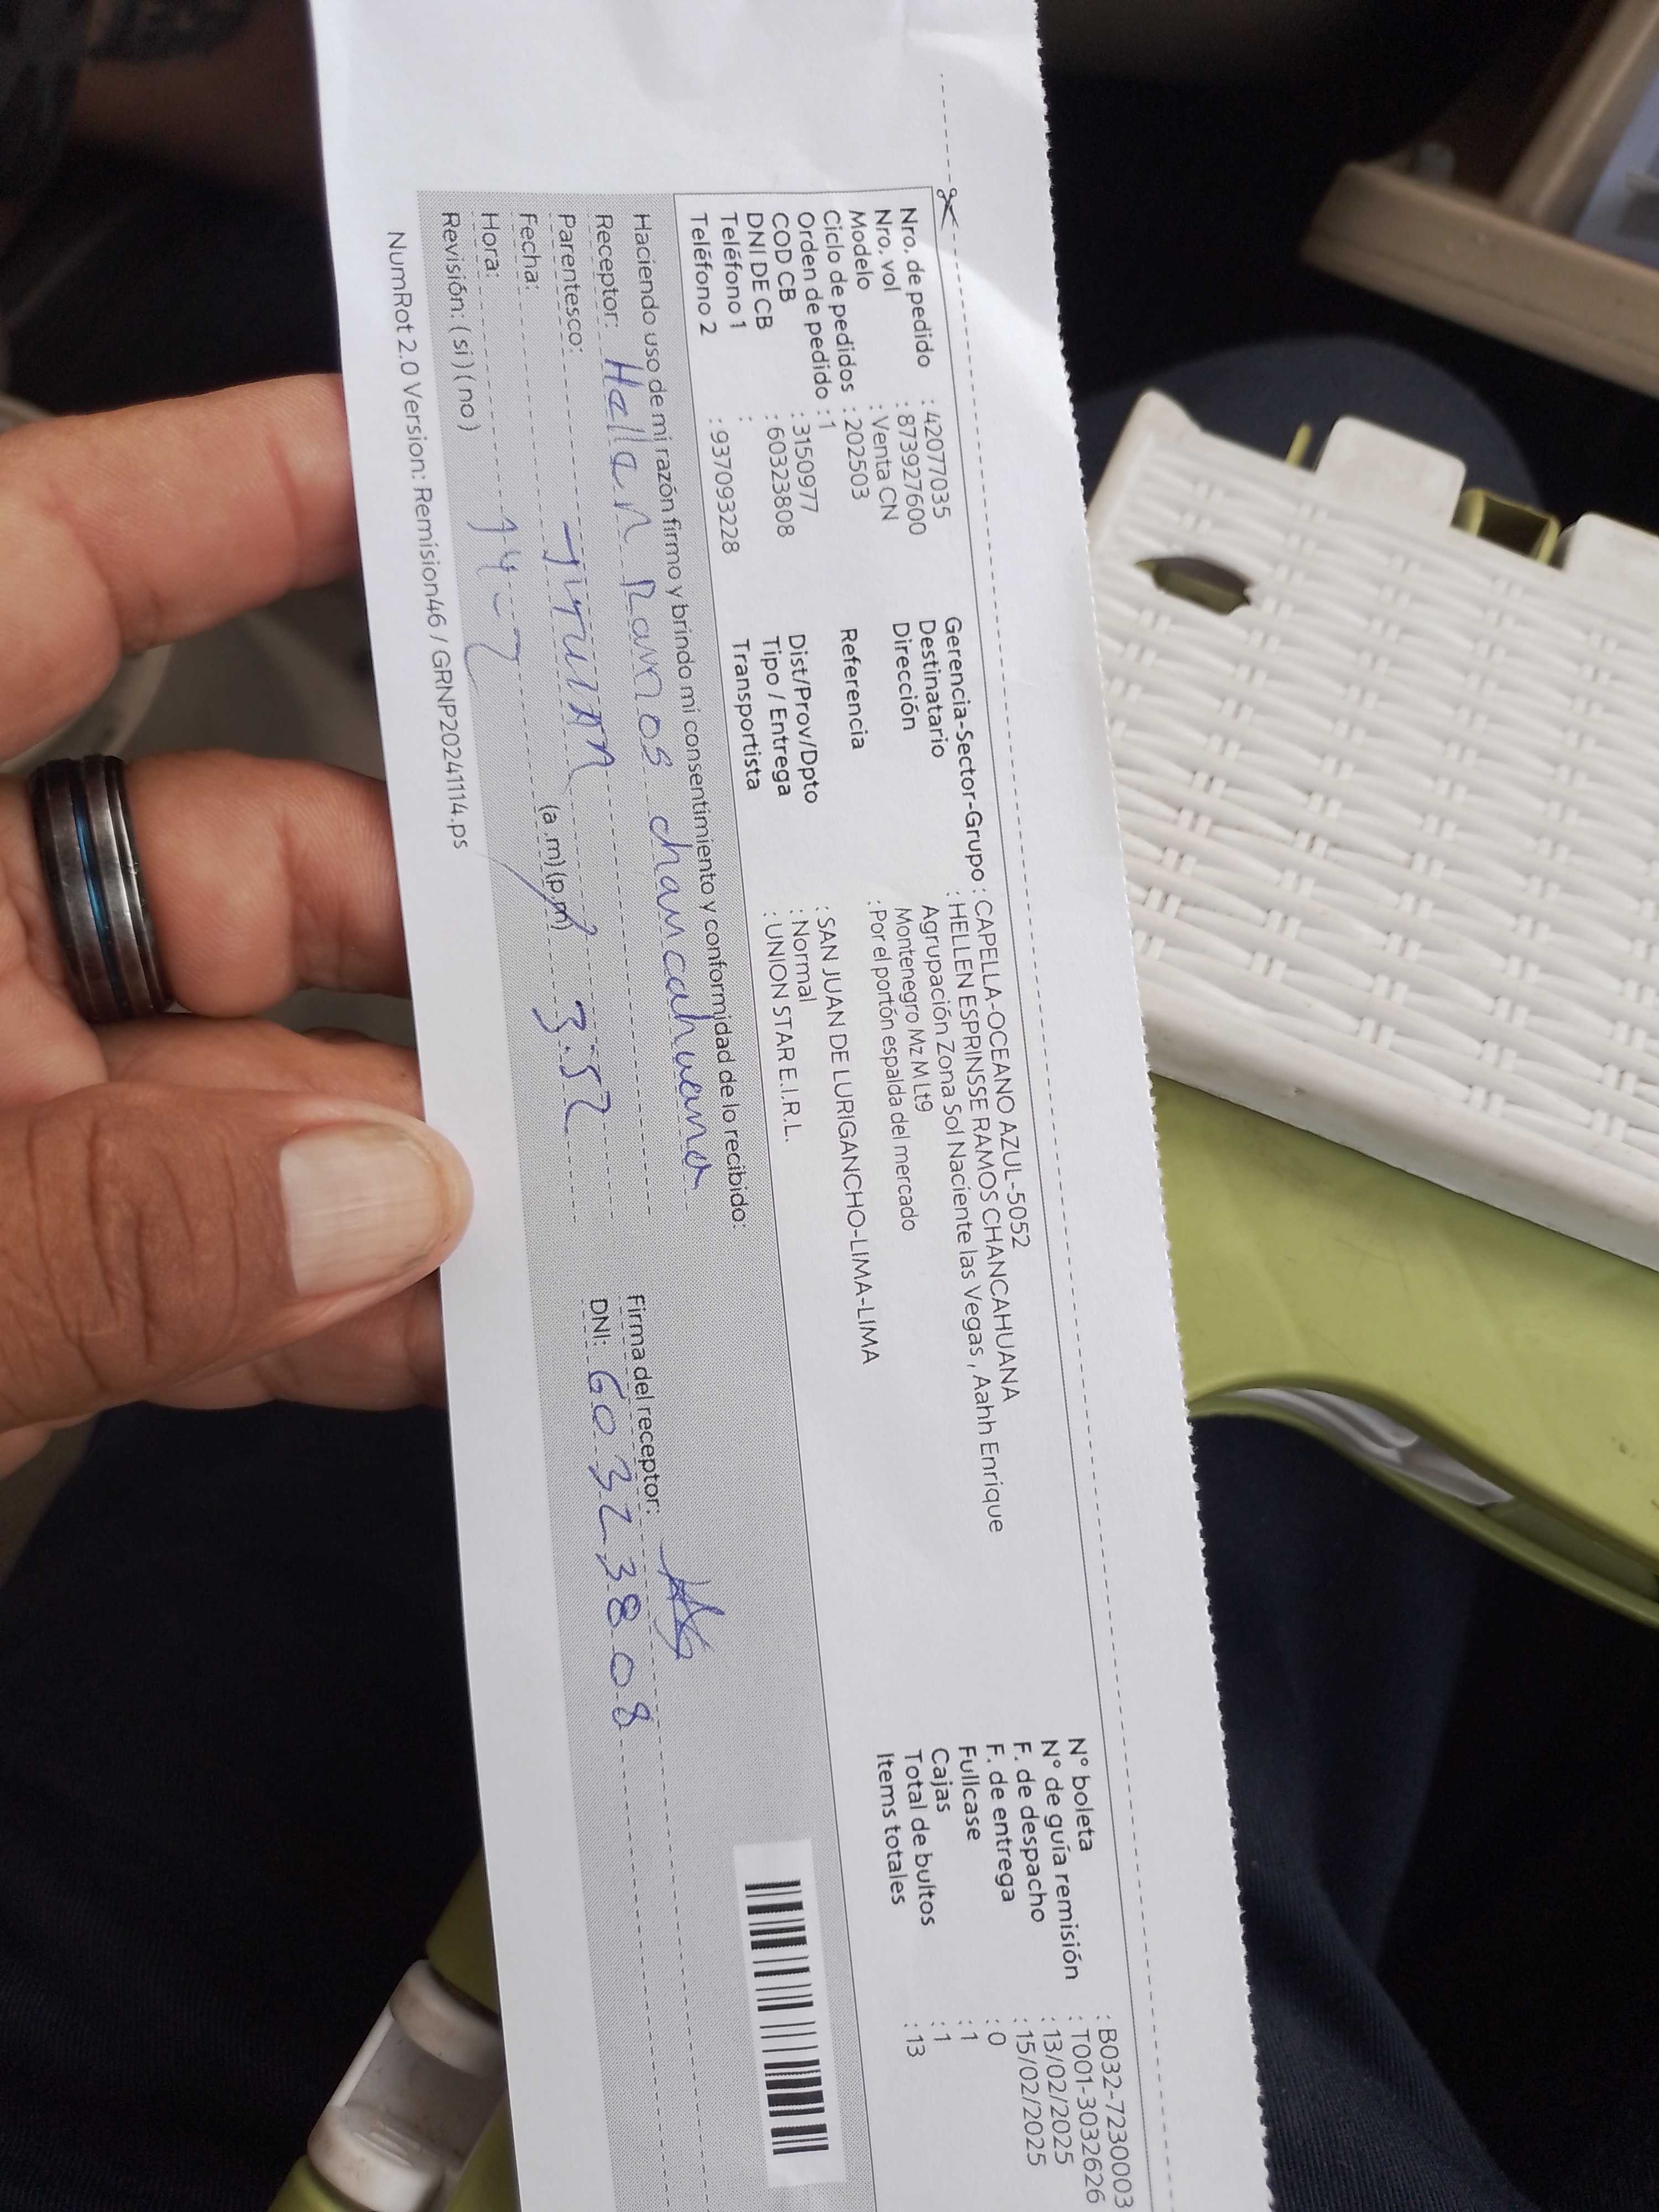 Nro. de pedido : 42077035
Nro. vol : 873927600
Modelo : Venta CN
Ciclo de pedidos : 202503
Orden de pedido : 1
COD CB : 3150977
DNI DE CB : 60323808
Teléfono 1 :
Teléfono 2 : 937093228
Gerencia-Sector-Grupo : CAPELLA-OCEANO AZUL-5052
Destinatario : HELLEN ESPRINSSE RAMOS CHANCAHUANA
Dirección Agrupación Zona Sol Naciente las Vegas , Aahh Enrique
Montenegro Mz M Lt9
Referencia : Por el portón espalda del mercado
Dist/Prov/Dpto : SAN JUAN DE LURIGANCHO-LIMA-LIMA
Tipo / Entrega : Normal
Transportista : UNION STAR E.I.R.L.
N° boleta : B032-7230003
N° de guía remisión : T001-3032626
F. de despacho : 13/02/2025
F. de entrega : 15/02/2025
Fullcase : 0
Cajas : 1
Total de bultos : 1
Items totales : 13
Haciendo uso de mi razón firmo y brindo mi consentimiento y conformidad de lo recibido:
Receptor: Hellen Ramos chancahuana
Firma del receptor:
Parentesco: Titular
DNI: 60323808
Fecha:
Hora: (a.m)(p.m) 3:52
Revisión: (si)(no)
NumRot 2.0 Version: Remision46 / GRNP20241114.ps